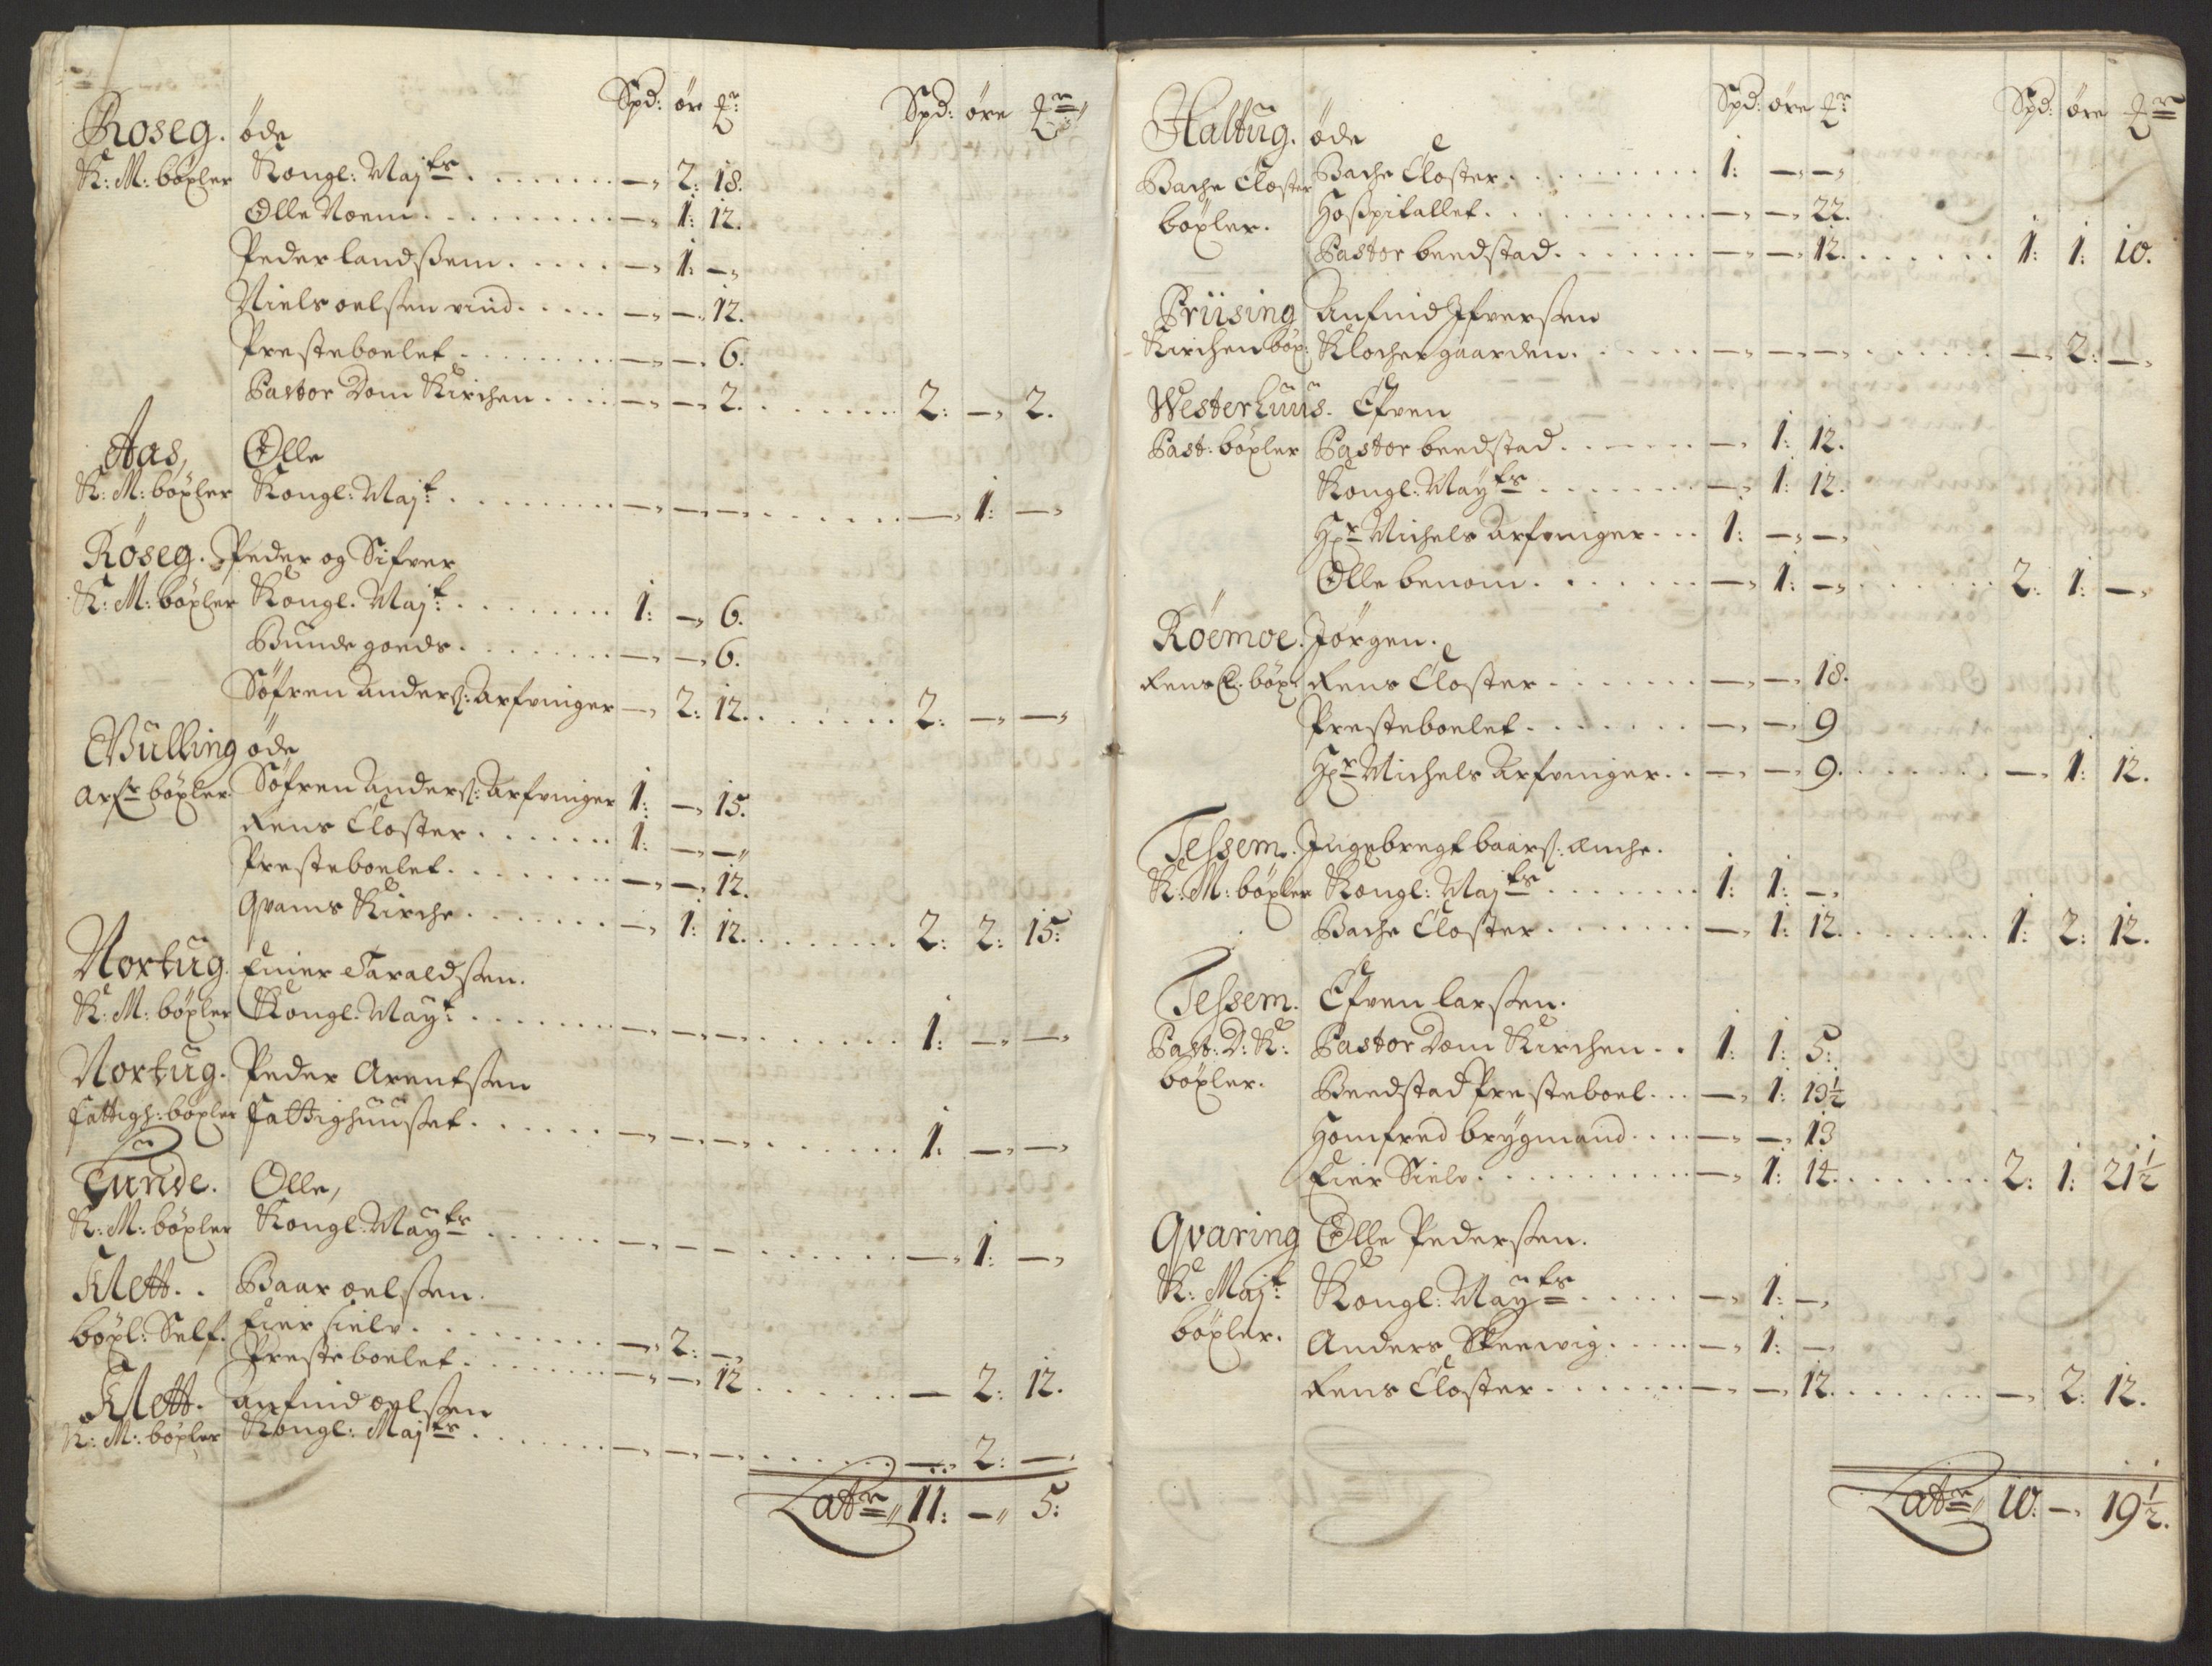 Spd: ör ℔r Spd: öre ℔r
Roseg. öde
K: M: böxler Kongl: Majts — 2: 18.
Olle Noem — 1: 12.
Peder landssem — 1: —
Niels oelsen vind — — 12.
Presteboelet — — 6.
Pastor Dom Kirchen — — 2. 2: — 2.
Aas, Olle
K: M: böxler Kongl: Majt — — — — 1: —
Röseg. Peder og Sifver
K: M: böxler Kongl. Majt: 1: — 6.
Bunde goeds — — 6.
Söfren Anders: Arfvinger — 2: 12. 2: — —
Wulling öde
Arfr böxler Söfren Anders: Arfvinger 1: — 15.
Rens Closter 1: — —
Presteboelet — — 12.
Qvams Kirche — 1: 12. 2: 2: 15:
Nortug. Einer Taraldsen.
K: M: böxler Kongl. Mayt: — — — 1: — —
Nortug. Peder Arentsen
fattigh: böxler fattighuuset — — — 1: — —
Tunde. Olle,
K: M: böxler Kongl. Mayts — — — — 1: —
Klett. . Baar oelsen.
böxl: Self. Eier sielv — 2: —
Presteboelet — — 12 — 2: 12.
Klett. Anfind oelsen
K: M: böxler Kongl: Majts — — — — 2: —
Latr 11: — 5:
Spd: öre ℔r Spd: öre ℔r
Haltug. öde
Bache Closter Bache Closter 1: — —
böxler. Hospitallet — — 22.
Pastor beedstad — — 12. 1: 1: 10.
Priising Anfind Ifversen
Kirchen böx: Klochergaarden — — — — 2: —
Westerhuus. Efven
Past: böxler Pastor beedstad — 1: 12.
Kongl: Mayts — 1: 12.
Hr Michels Arfvinger 1: — —
Olle benom — 1: — 2: 1: —
Röemoe. Jörgen.
Rens Cl. böx: Rens Closter — — 18.
Presteboelet — — 9
Hr Michels Arfvinger — — 9. — 1: 12.
Tessem. Ingebregt baars: Enche.
K: M: böxler Kongl: Majts 1: 1: —
Bache Closter — 1: 12. 1: 2: 12.
Tessem. Efven larsen.
Past: D: K: Pastor Dom Kirchen 1: 1: 5:
böxler. Beedstad Presteboel — 1: 13½
Homfred brygmand — — 13
Eier Sielv — 1: 14. 2: 1: 21½
Qvaring Olle Pedersen.
K: Majt: Kongl: Mayts — 1: —
böxler. Anders Skeevig — 1: —
Rens Closter — — 12. — 2: 12.
Latr 10. — 19½.